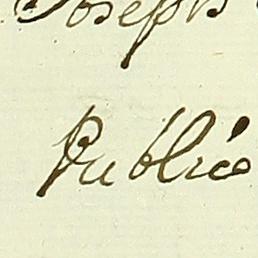 Joseph
Public